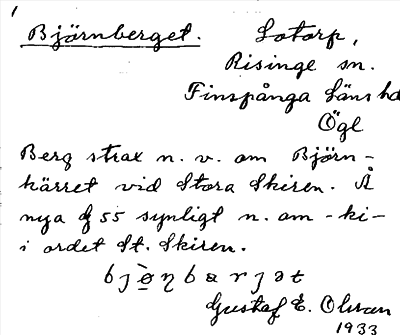 Björnberget. Lotorp,
Risinge sn.
Finspånga Läns hd
Ögl
Berg strax n. v. om Björn-
kärret vid Stora Skiren. Å
nya gf 55 synligt n. om -ki-
i ordet St. Skiren.
Gustaf E. Olsson
1933